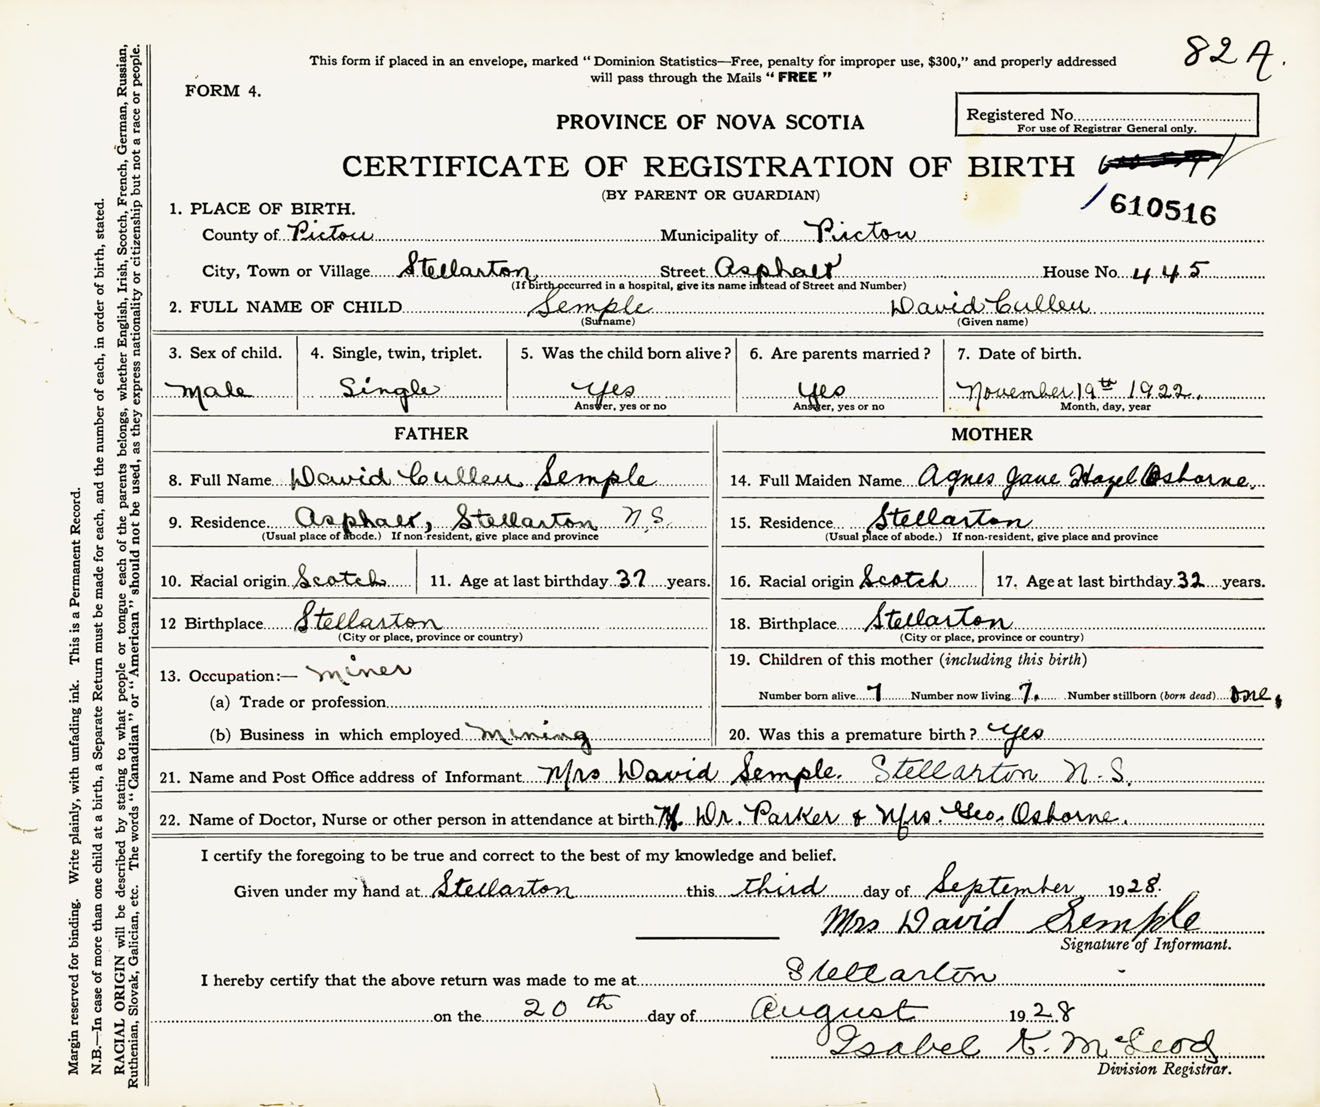 82 A.
This form if placed in an envelope, marked "Dominion Statistics—Free, penalty for improper use, $300," and properly addressed
will pass through the Mails "FREE"
FORM 4.
Registered No.
For use of Registrar General only.
PROVINCE OF NOVA SCOTIA
CERTIFICATE OF REGISTRATION OF BIRTH
(BY PARENT OR GUARDIAN)
610516
1. PLACE OF BIRTH.
County of Pictou Municipality of Pictou
City, Town or Village Stellarton Street Asphalt House No. 445
(If birth occurred in a hospital, give its name instead of Street and Number)
2. FULL NAME OF CHILD Semple David Cullen
(Surname) (Given name)
3. Sex of child. 4. Single, twin, triplet. 5. Was the child born alive? 6. Are parents married? 7. Date of birth.
Male Single Yes Yes November 19th 1922.
Answer, yes or no Answer, yes or no Month, day, year
FATHER MOTHER
8. Full Name David Cullen Semple 14. Full Maiden Name Agnes Jane Hazel Osborne.
9. Residence Asphalt, Stellarton N.S. 15. Residence Stellarton
(Usual place of abode.) If non-resident, give place and province (Usual place of abode.) If non-resident, give place and province
10. Racial origin Scotch 11. Age at last birthday 37 years. 16. Racial origin Scotch 17. Age at last birthday 32 years.
12 Birthplace Stellarton 18. Birthplace Stellarton
(City or place, province or country) (City or place, province or country)
13. Occupation:— Miner 19. Children of this mother (including this birth)
(a) Trade or profession Number born alive 7 Number now living 7. Number stillborn (born dead) one,
(b) Business in which employed Mining 20. Was this a premature birth? Yes
21. Name and Post Office address of Informant Mrs David Semple. Stellarton N.S.
22. Name of Doctor, Nurse or other person in attendance at birth Dr. Parker & Mrs. Geo. Osborne.
I certify the foregoing to be true and correct to the best of my knowledge and belief.
Given under my hand at Stellarton this third day of September 1928.
Mrs David Semple
Signature of Informant.
I hereby certify that the above return was made to me at Stellarton
on the 20th day of August 1928
Isabel K. McLeod
Division Registrar.
Margin reserved for binding. Write plainly, with unfading ink. This is a Permanent Record.
N.B.—In case of more than one child at a birth, a Separate Return must be made for each, and the number of each, in order of birth, stated.
RACIAL ORIGIN will be described by stating to what people or tongue each of the parents belongs, whether English, Irish, Scotch, French, German, Russian,
Ruthenian, Slovak, Galician, etc. The words "Canadian" or "American" should not be used, as they express nationality or citizenship but not a race or people.